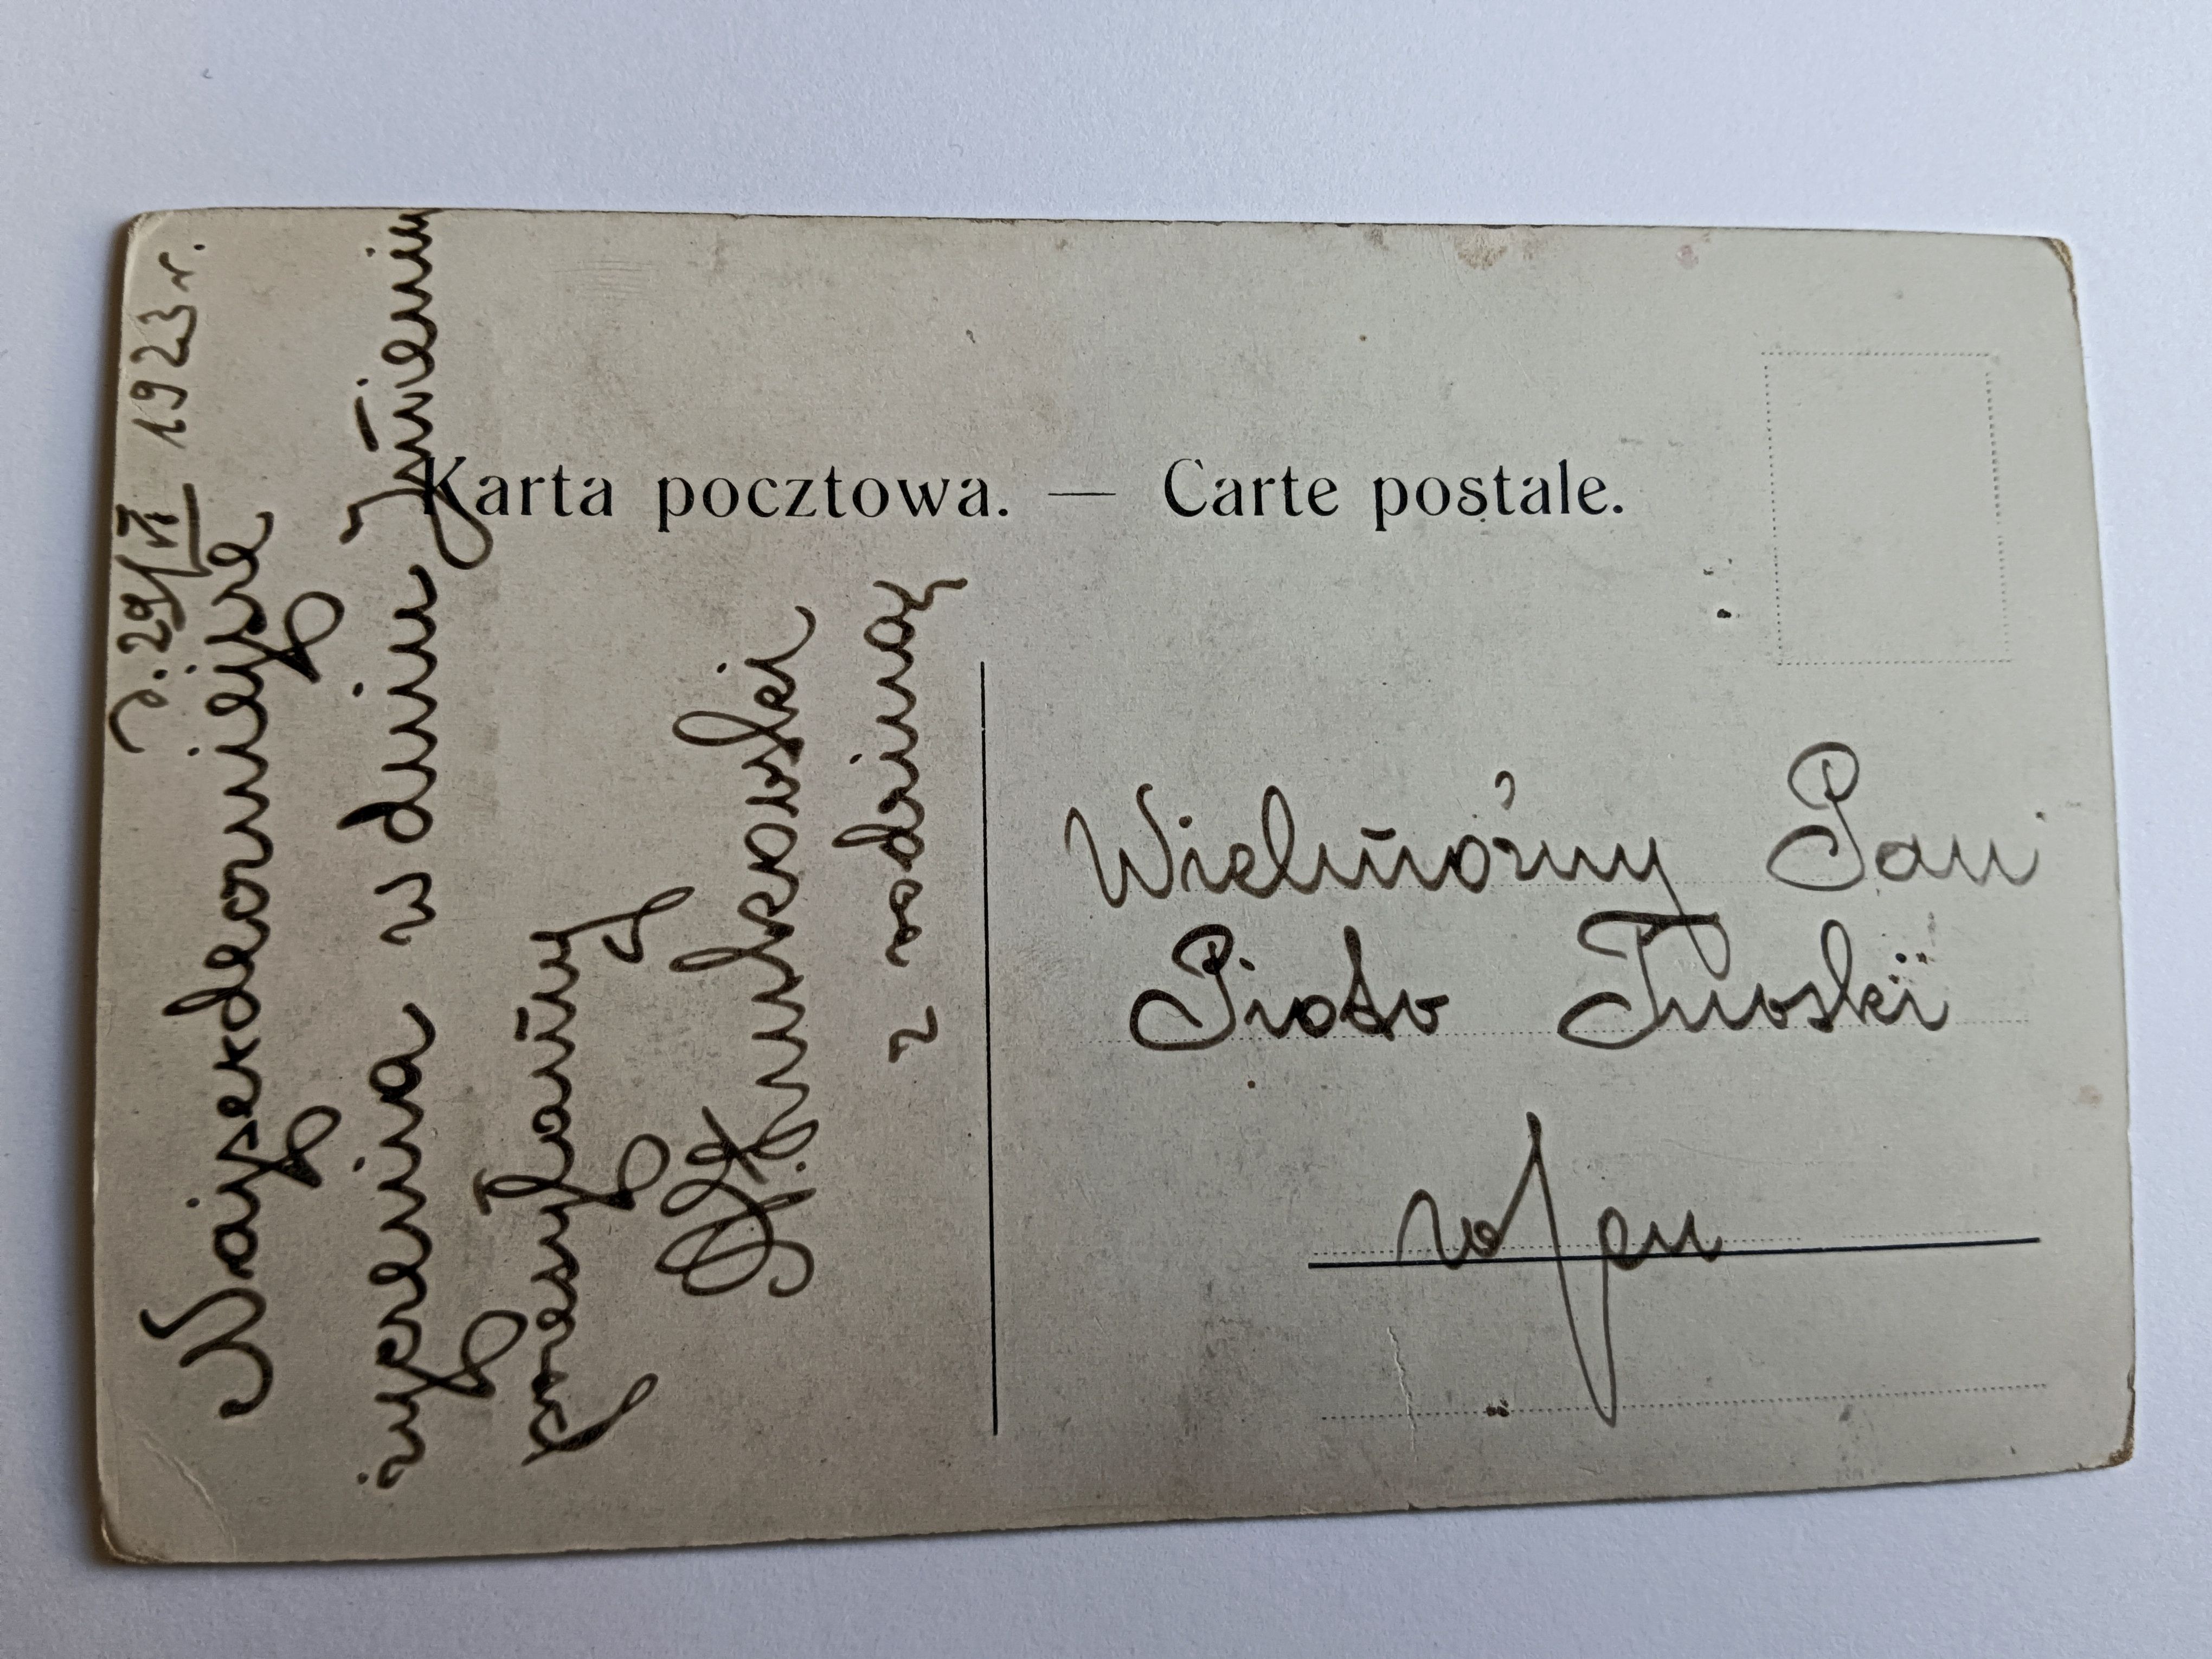 d. 29/VI 1923 r.
Najserdeczniejsze
życzenia w dniu Imienin
przesyłamy
z rodziną
Karta pocztowa. — Carte postale.
Wielmożny Pan
Piotr Turski